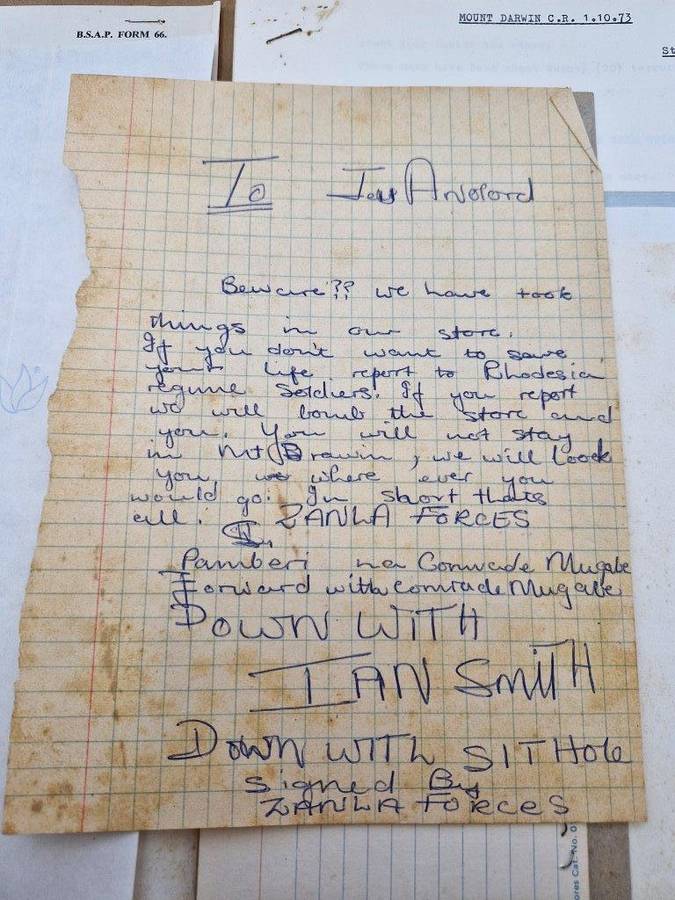 B.S.A.P. FORM 66.
MOUNT DARWIN C.R. 1.10.73
To
Beware?? we have took
things in our store.
If you don't want to save
your life report to Rhodesia
regime Soldiers. If you report
we will bomb the store and
you. You will not stay
in Mt Drawin, we will Look
you, where ever you
would go. In short thats
all. ZANLA FORCES
Pamberi na Comrade Mugabe
Forward with comrade Mugabe
DOWN WITH
IAN SmiTH
DOWN WITH SITHole
Signed By
ZANLA FORCES
ores Cat. No.